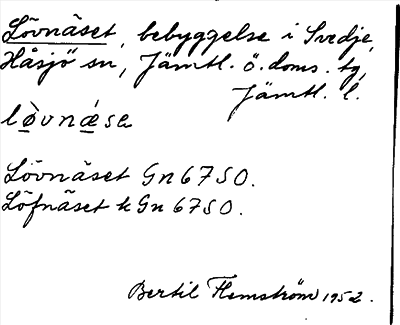 Lövnäset, bebyggelse i Svedje,
Håsjö sn, Jämtl. ö. doms. tg,
Jämtl. l.
lò̤vnǽse
Lövnäset Gn 67SO.
Löfnäset k Gn 67SO.
Bertil Flemström 1952.